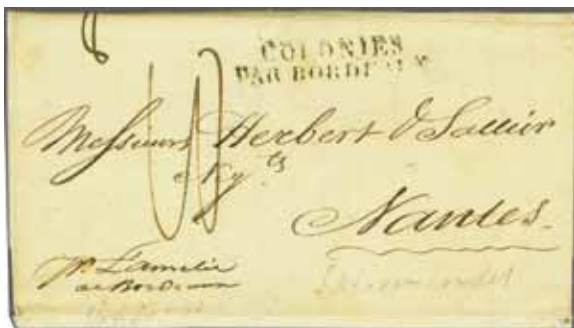 COLONIES
PAR BORDEAUX
Messieurs Herbert & Sallier
Nég.ts
Nantes.
pr. L'amelie
de Bordeaux